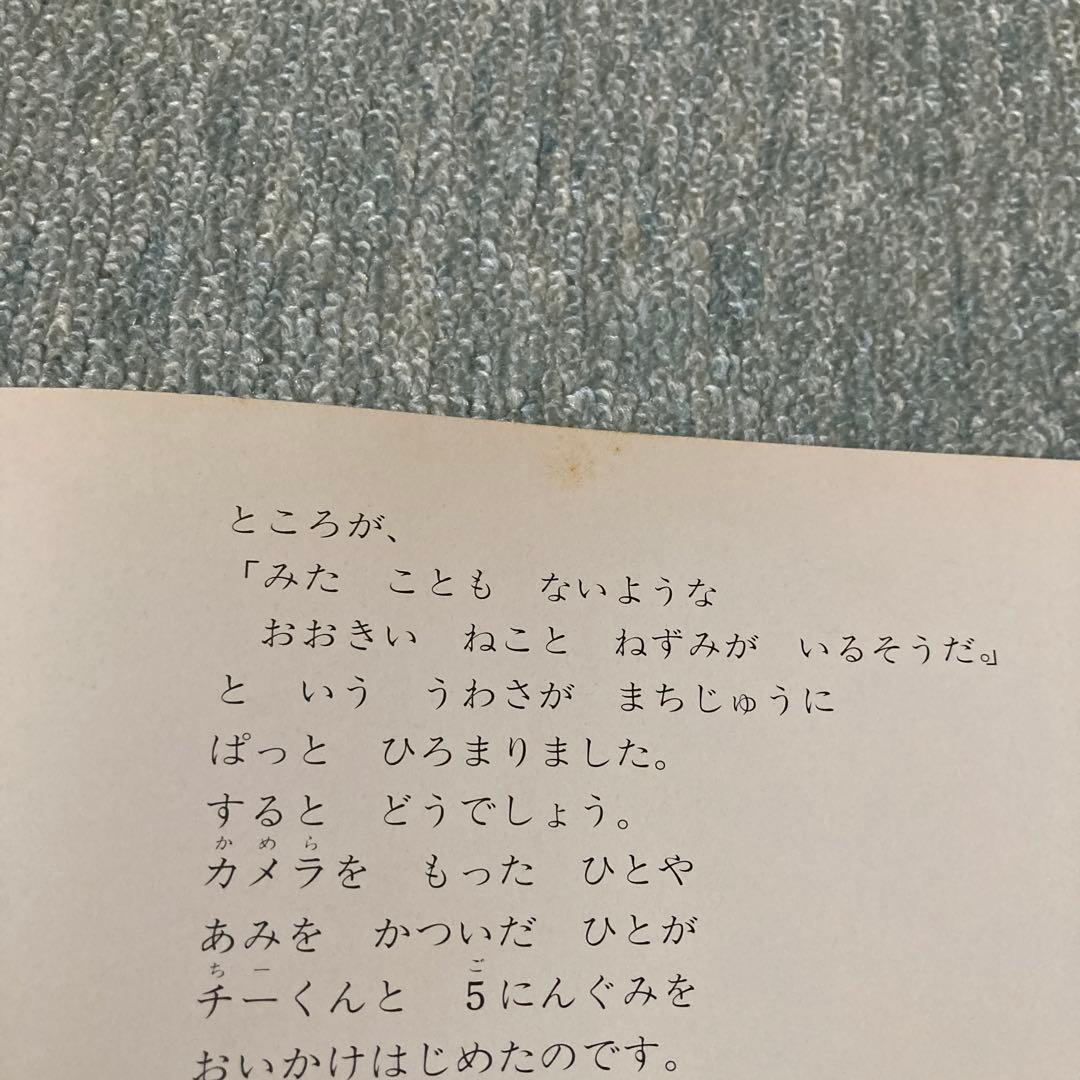 ところが、
「みた　ことも　ないような
おおきい　ねこと　ねずみが　いるそうだ。」
と　いう　うわさが　まちじゅうに
ぱっと　ひろまりました。
すると　どうでしょう。
かめら
カメラを　もった　ひとや
あみを　かついだ　ひとが
ちー　ご
チーくんと　5にんぐみを
おいかけはじめたのです。